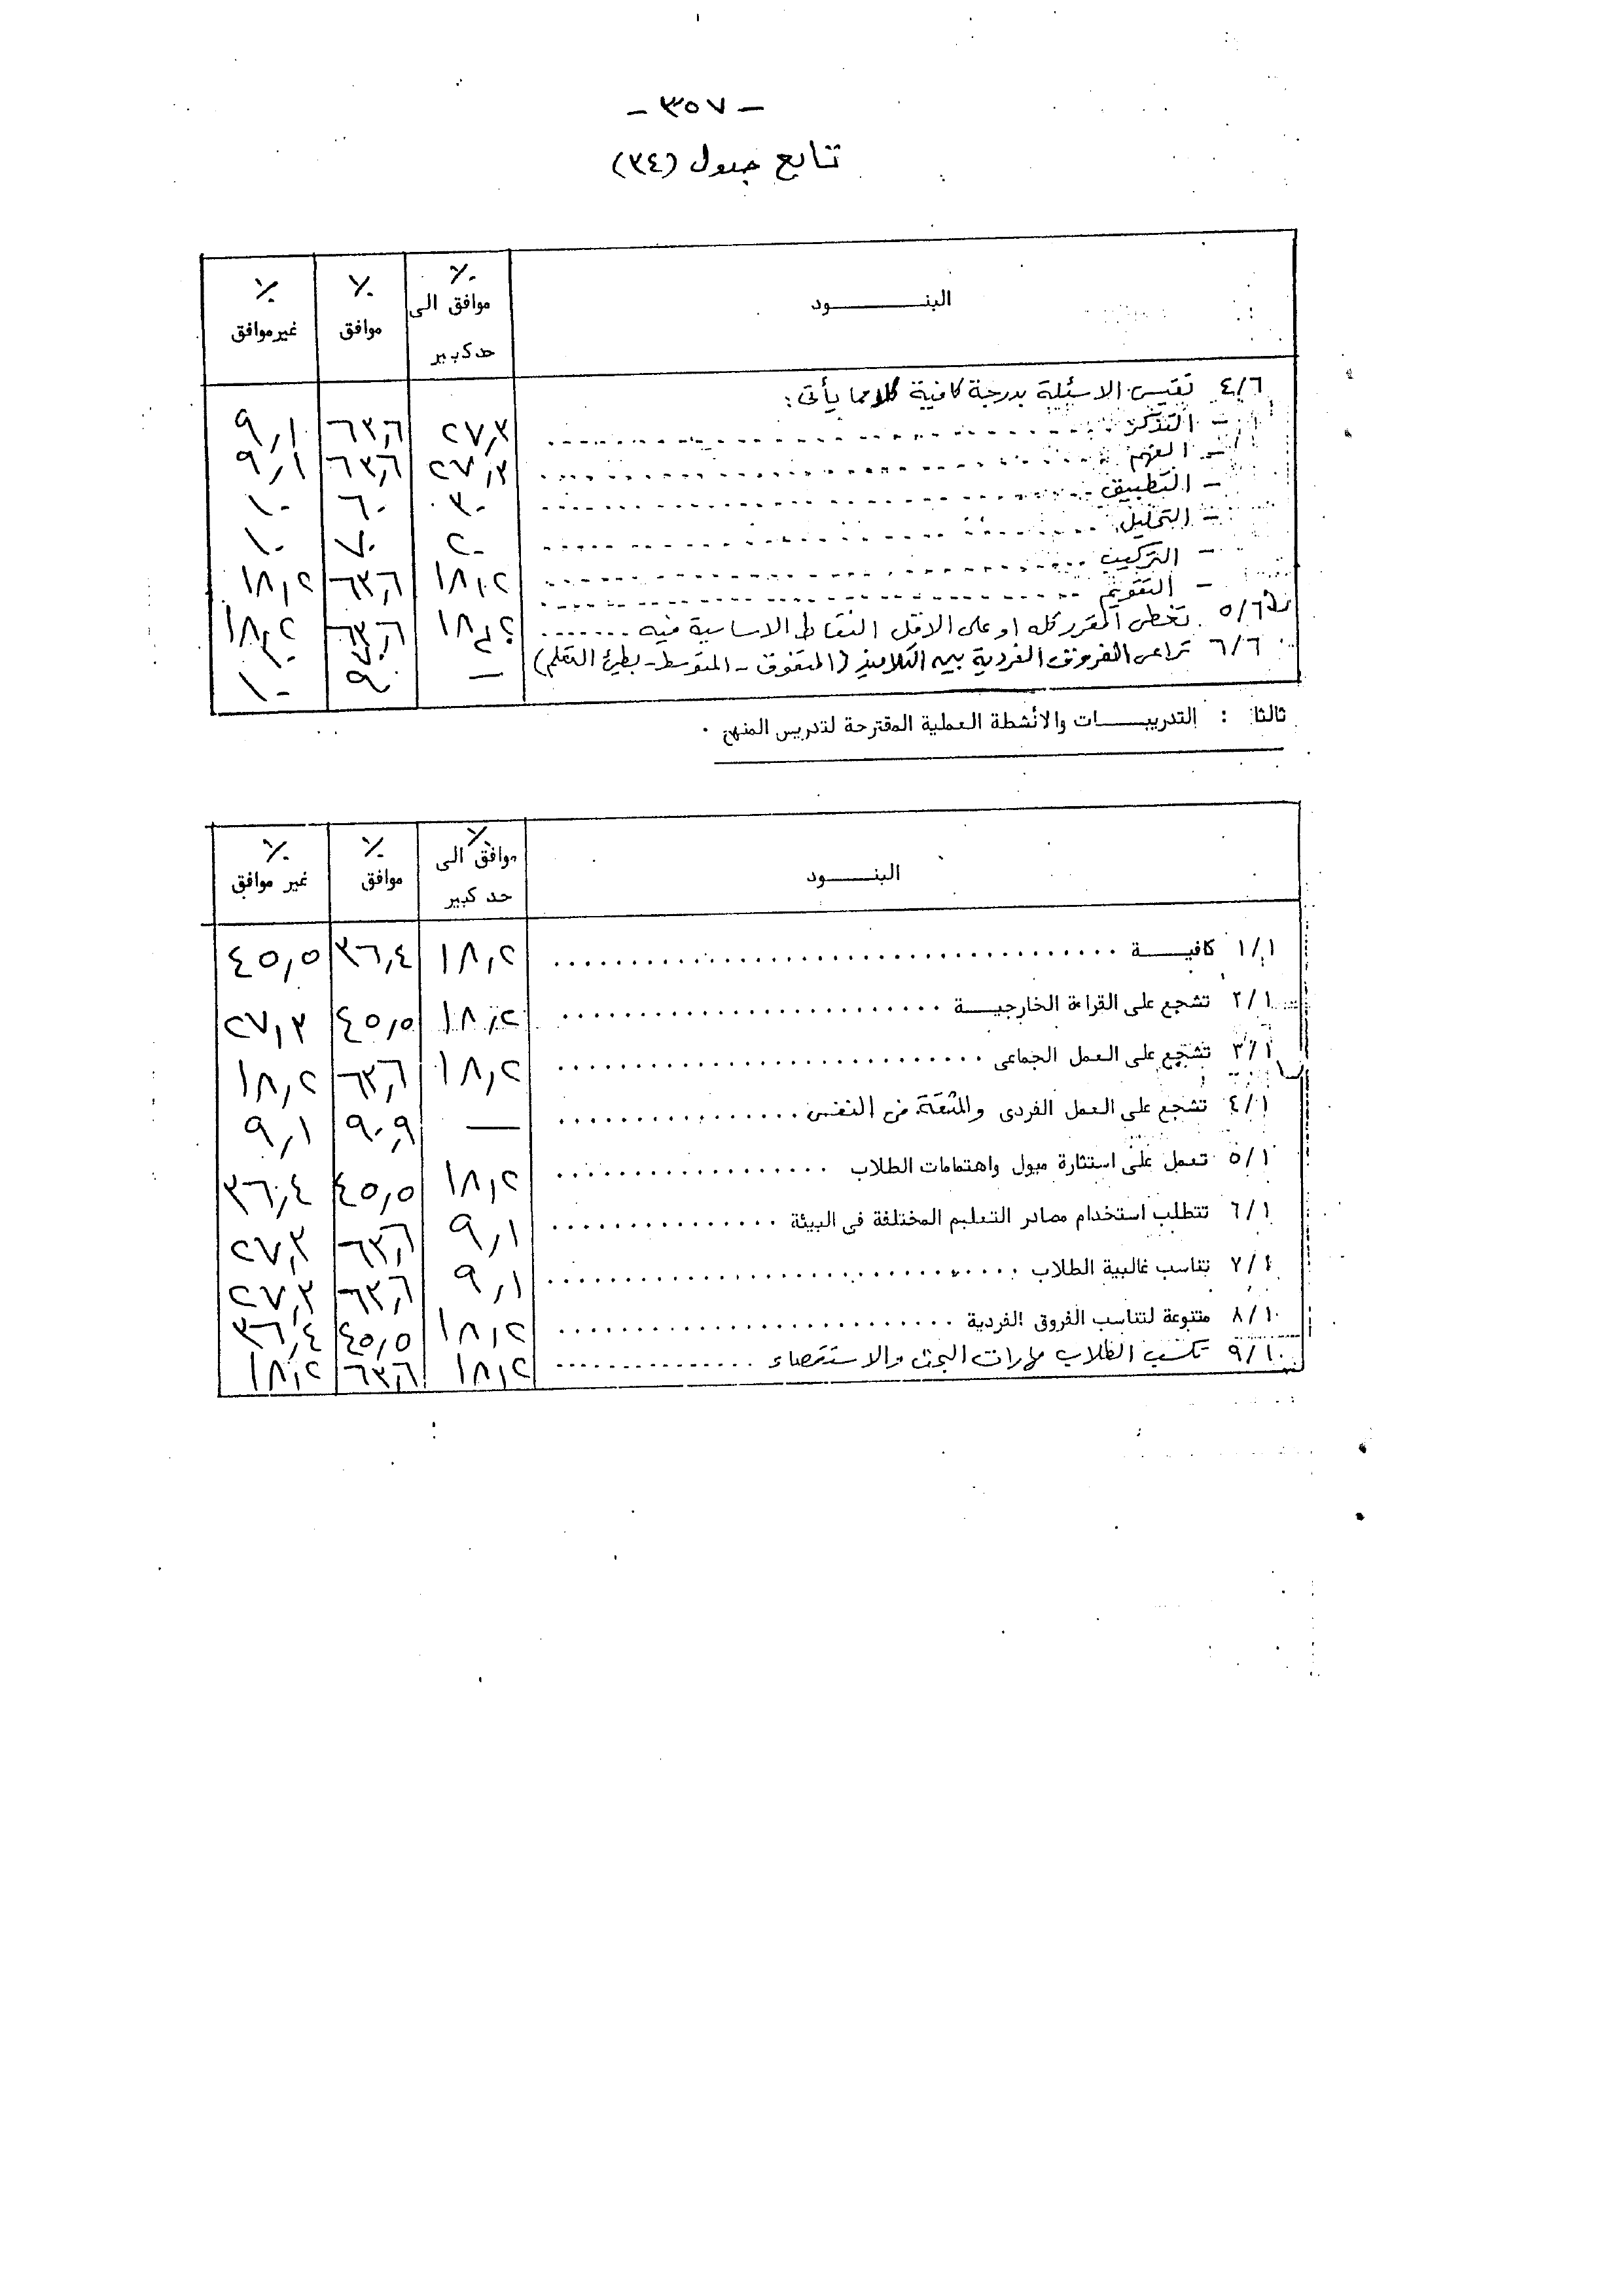 - ٣٥٧ -
تابع جدول (٣٤)
البنــــــــود | ٪ موافق الى حد كبير | ٪ موافق | ٪ غير موافق
٤/٦ تقيس الاسئلة بدرجة كافية كلا مما يأتى :
- التذكر ........ ٢٧,٣ | ٦٣,٦ | ٩,١
- الفهم ........ ٢٧,٣ | ٦٣,٦ | ٩,١
- التطبيق ........ ٣٠ | ٦٠ | ١٠
- التحليل ........ ٢٠ | ٧٠ | ١٠
- التركيب ........ ١٨,٢ | ٦٣,٦ | ١٨,٢
- التقويم ........ ١٨,٢ | ٦٣,٦ | ١٨,٢
٥/٦ تغطى المقرر كله او على الاقل النقاط الاساسية فيه ....... ٧٠ | ٢٠
٦/٦ تراعى الفروق الفردية بين التلاميذ (المتفوق - المتوسط - بطئ التعلم) — | ٩٠ | ١٠
ثالثا : التدريبـــات والأنشطة العملية المقترحة لتدريس المنهج .
البنـــــود | ٪ موافق الى حد كبير | ٪ موافق | ٪ غير موافق
١/١ كافيـــــة ........ ١٨,٢ | ٣٦,٤ | ٤٥,٥
٢/١ تشجع على القراءة الخارجيـــة ........ ١٨,٢ | ٤٥,٥ | ٢٧,٣
٣/١ تشجع على العمل الجماعى ........ ١٨,٢ | ٦٣,٦ | ١٨,٢
٤/١ تشجع على العمل الفردى والثقة فى النفس ........ — | ٩٠,٩ | ٩,١
٥/١ تعمل على استثارة ميول واهتمامات الطلاب ........ ١٨,٢ | ٤٥,٥ | ٣٦,٤
٦/١ تتطلب استخدام مصادر التعليم المختلفة فى البيئة ........ ٩,١ | ٦٣,٦ | ٢٧,٣
٧/١ تناسب غالبية الطلاب ........ ٩,١ | ٦٣,٦ | ٢٧,٣
٨/١٠ متنوعة لتناسب الفروق الفردية ........ ١٨,٢ | ٤٥,٥ | ٣٦,٤
٩/١٠ تكسب الطلاب مهارات البحث والاستقصاء ........ ١٨,٢ | ٦٣,٦ | ١٨,٢